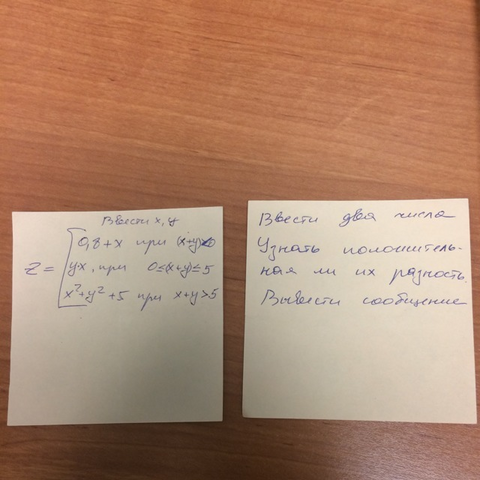 Ввести x, y
0,8+x при (x+y)<0
Z = yx, при 0≤(x+y)≤5
x²+y²+5 при x+y>5
Ввести два числа
Узнать положитель-
ная ли их разность.
Вывести сообщение